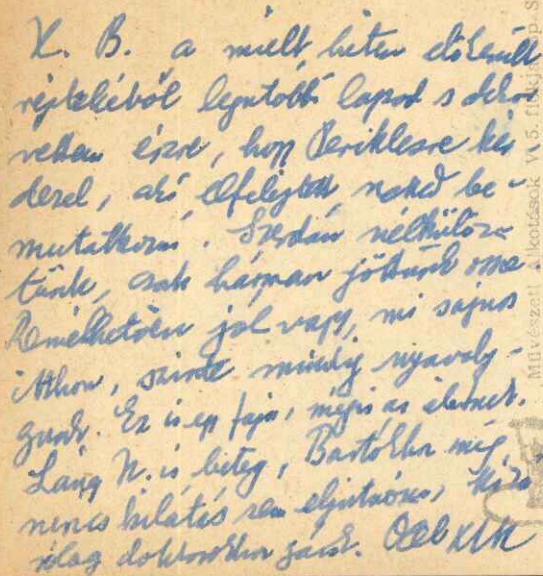 K. B. a múlt héten előkerült
rejtekéből legutóbbi lapod s akkor
vettem észre, hogy Periklesre kér
dezel, aki elfelejtett neked be-
mutatkozni. Szerdán nélkülöz-
tünk, csak hárman jöttünk össze
Remélhetően jól vagy, mi sajnos
itthon, szinte mindig nyavaly-
gunk. Ez is egy faja, mégis az életnek.
Láng N. is beteg, Bartókhoz még
nincs kilátás sem eljutnom,
világ doktorokhoz járok. Ölel
Művészeti Alkotások V. 5.